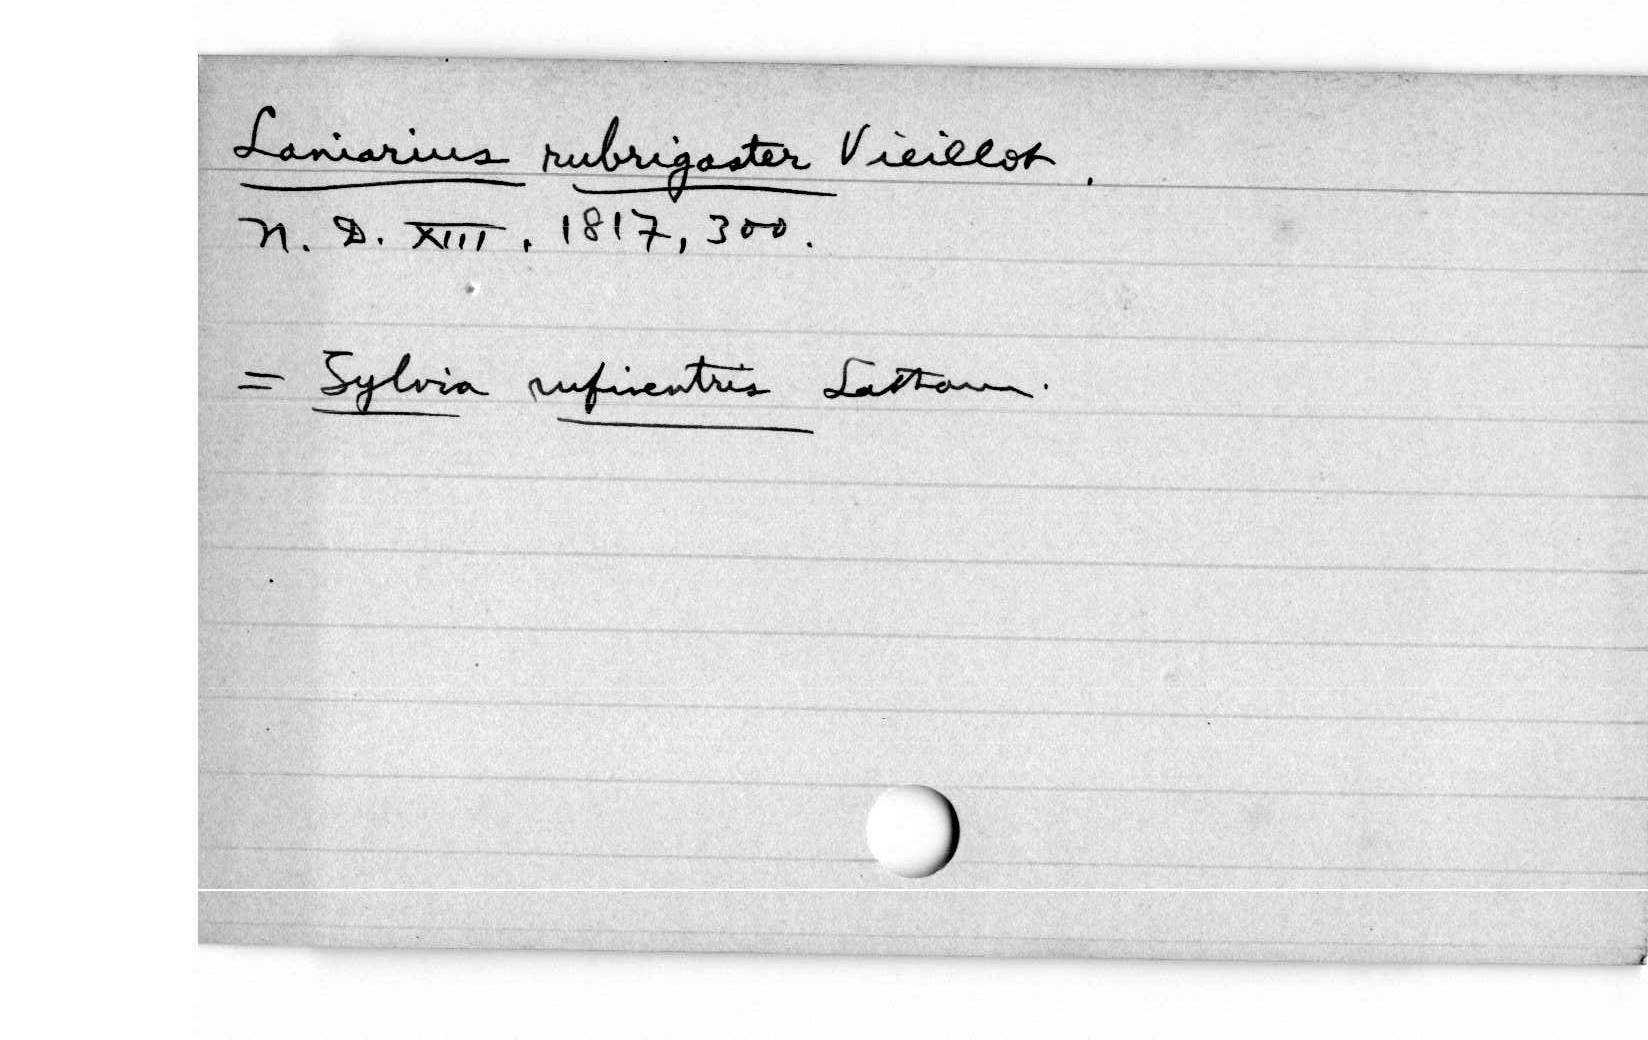 Laniarius rubrigaster Vieillot.
N. D. XIII, 1817, 300.
= Sylvia rufiventris Latham.